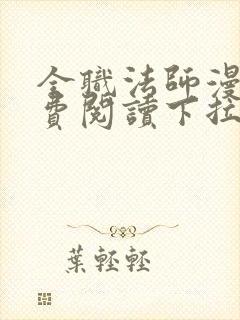 全職法師漫
費閱讀下拉
葉輕輕